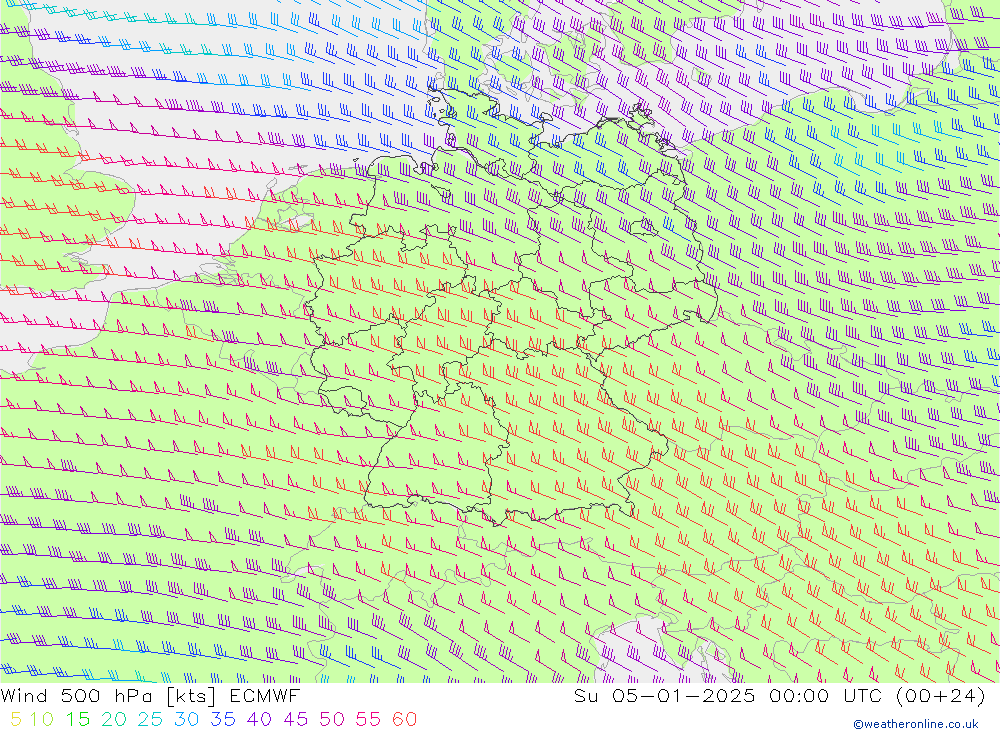 Wind 500 hPa [kts] ECMWF Su 05-01-2025 00:00 UTC (00+24)
5 10 15 20 25 30 35 40 45 50 55 60
©weatheronline.co.uk